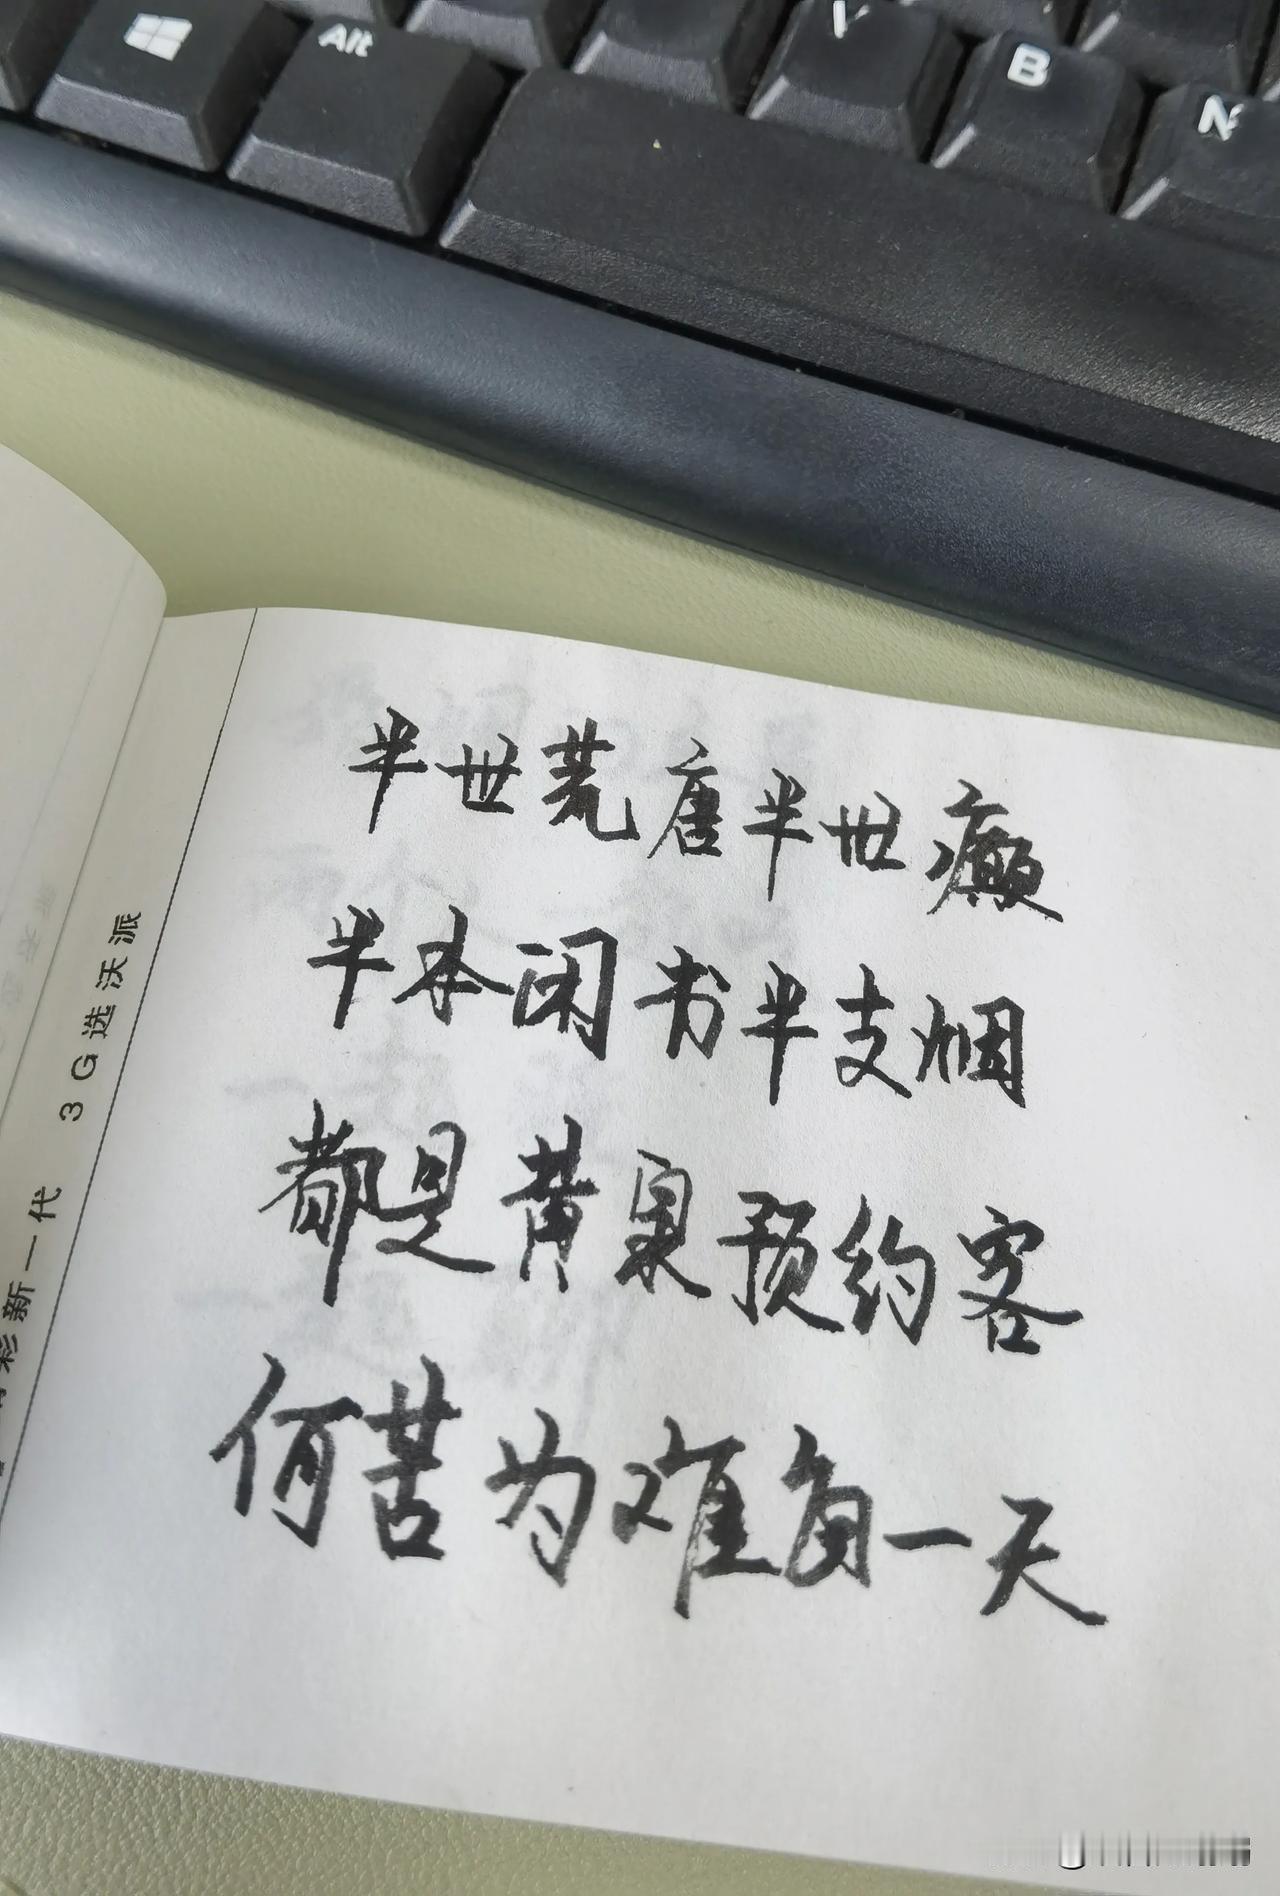 Alt
V
B
N
半世荒唐半世癫
半本闲书半支烟
都是黄泉预约客
何苦为难负一天
彩新一代 3G选沃派